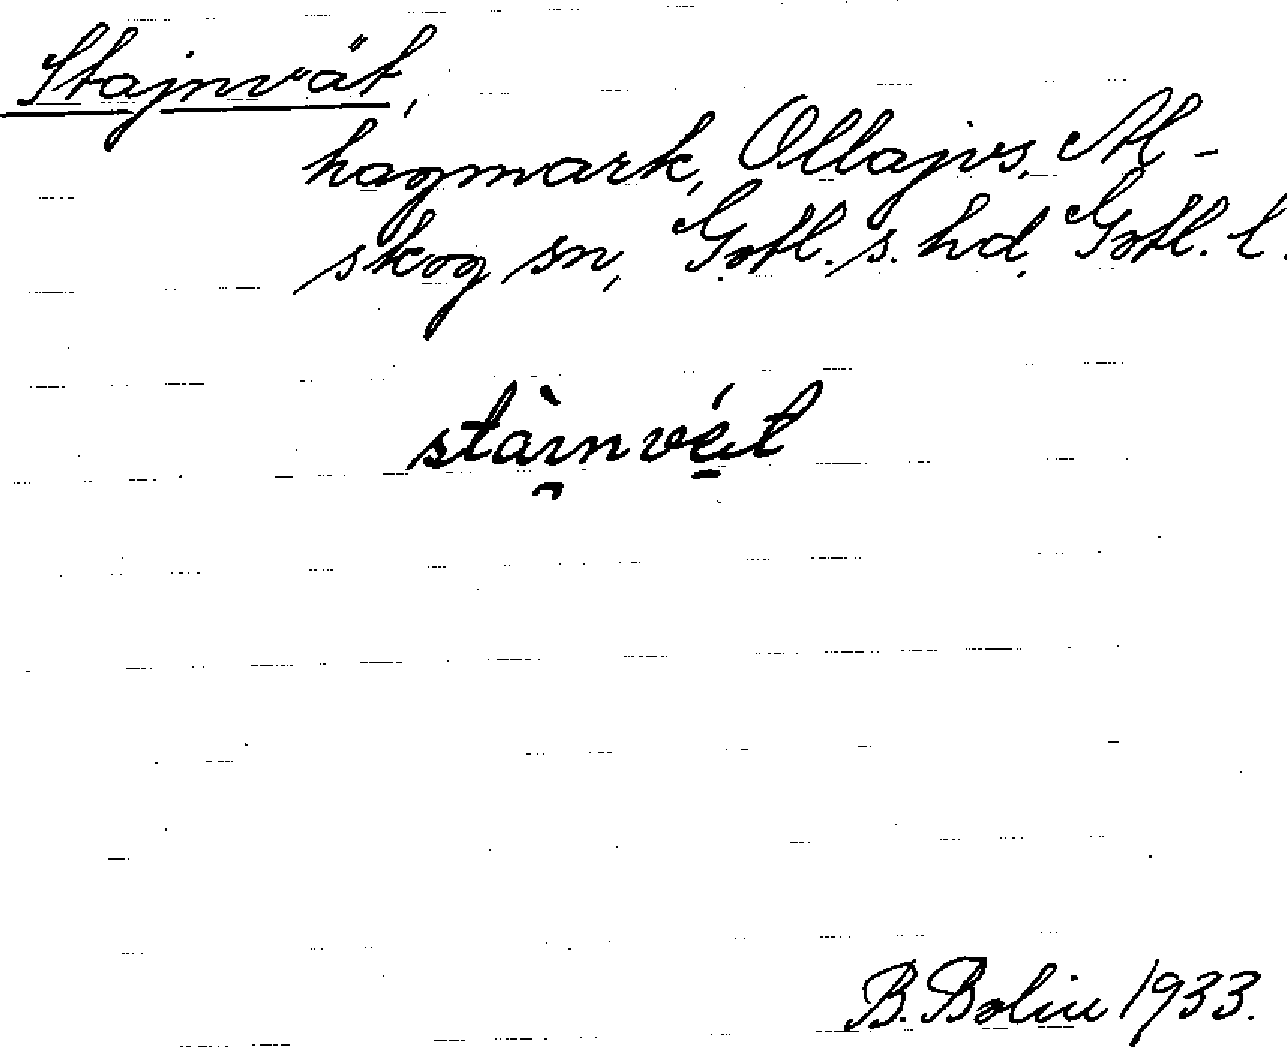 Stajnvät,
hagmark, Ollajvs, Al-
skog sn, Gotl. s. hd, Gotl. l.
stàinvét
B. Bolin 1933.